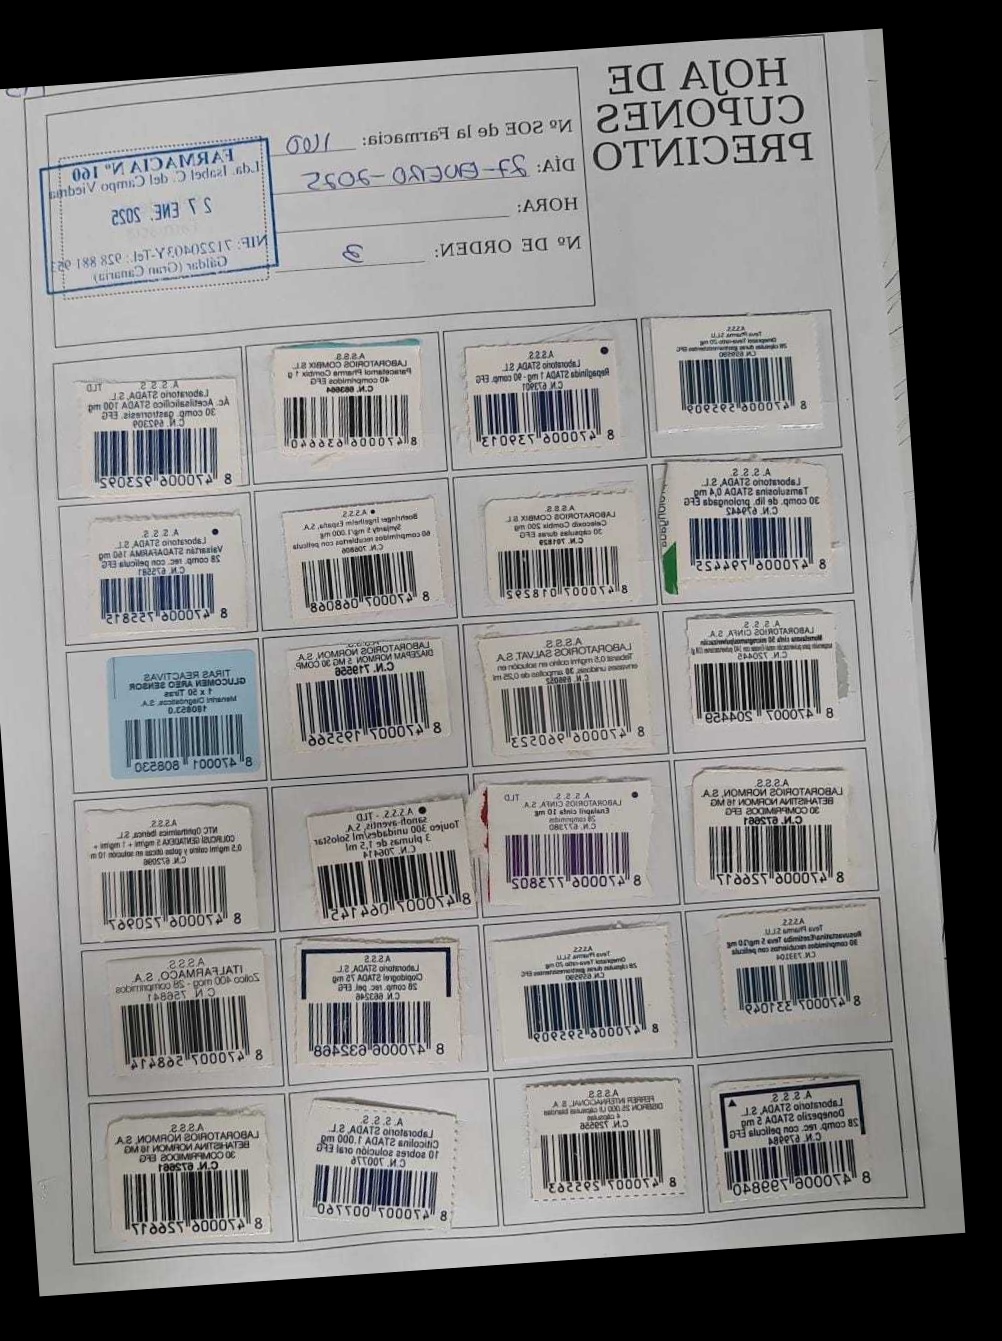 HOJA DE
CUPONES
PRECINTO
Nº SOE de la Farmacia: 160
DÍA: 27-ENERO-2025
HORA:
Nº DE ORDEN: 3
FARMACIA Nº 160
Lda. Isabel C. del Campo Viedma
27 ENE. 2025
NIF: 71220403Y-Tel.: 928 881 953
Gáldar (Gran Canaria)
A.S.S.S.
Teva Pharma, S.L.U.
Omeprazol Teva-ratio 20 mg
28 cápsulas duras gastrorresistentes EFG
C.N. 659590
8 470006 595909
A.S.S.S.
Laboratorio STADA, S.L.
Repaglinida STADA 1 mg - 90 comp. EFG
C.N. 673901
8 470006 739013
A.S.S.S.
LABORATORIOS COMBIX S.L.
Paracetamol Pharma Combix 1 g
40 comprimidos EFG
C.N. 663664
8 470006 636640
A. S. S. S. TLD
Laboratorio STADA, S.L.
Ác. Acetilsalicílico STADA 100 mg
30 comp. gastrorresis. EFG
C.N. 692309
8 470006 923092
A. S. S. S.
Laboratorio STADA, S.L.
Tamsulosina STADA 0,4 mg
30 comp. de lib. prolongada EFG
C.N. 679442
8 470006 794425
A.S.S.S.
LABORATORIOS COMBIX S.L.
Celecoxib Combix 200 mg
30 cápsulas duras EFG
C.N. 701829
8 470007 018292
A.S.S.S.
Boehringer Ingelheim España, S.A.
Synjardy 5 mg/1.000 mg
60 comprimidos recubiertos con película
C.N. 706806
8 470007 068068
A. S. S. S.
Laboratorio STADA, S.L.
Valsartán STADAFARMA 160 mg
28 comp. rec. con película EFG
C.N. 675581
8 470006 755815
A. S. S. S.
LABORATORIOS CINFA, S.A.
Mometasona cinfa 50 microgramos/pulverización
C.N. 720445
8 470007 204459
A.S.S.S.
LABORATORIOS SALVAT, S.A.
0,5 mg/ml colirio en solución en
envases unidosis, 30 ampollas de 0,25 ml
C.N. 696052
8 470006 960523
A.S.S.S.
LABORATORIOS NORMON, S.A.
DIAZEPAM NORMON 5 MG 30 COMP
C.N. 719556
8 470007 195566
TIRAS REACTIVAS
GLUCOMEN AREO SENSOR
1 x 50 Tiras
Menarini Diagnósticos, S.A.
180853.0
8 470001 808530
A.S.S.S.
LABORATORIOS NORMON, S.A.
BETAHISTINA NORMON 16 MG
30 COMPRIMIDOS EFG
C.N. 672661
8 470006 726617
A. S. S. S. TLD
LABORATORIOS CINFA, S.A.
Enalapril cinfa 10 mg
28 comprimidos
C.N. 677380
8 470006 773802
A.S.S.S. - TLD
sanofi-aventis, S.A.
Toujeo 300 unidades/ml SoloStar
3 plumas de 1,5 ml
C.N. 706414
8 470007 064145
A.S.S.S.
NTC Ophthalmics Ibérica, S.L.
COLIRCUSI GENTADEXA 5 mg/ml + 1 mg/ml +
0,5 mg/ml colirio y gotas óticas en solución 10 m
C.N. 672096
8 470006 720967
A.S.S.S.
Teva Pharma S.L.U
Rosuvastatina/Ezetimiba Teva 5 mg/10 mg
30 comprimidos recubiertos con película
C.N. 733104
8 470007 331049
A.S.S.S.
Teva Pharma, S.L.U.
Omeprazol Teva-ratio 20 mg
28 cápsulas duras gastrorresistentes EFG
C.N. 659590
8 470006 595909
A.S.S.S.
Laboratorio STADA, S.L.
Clopidogrel STADA 75 mg
28 comp. rec. pel. EFG
C.N. 663246
8 470006 632468
A.S.S.S.
ITALFARMACO, S.A.
Zolico 400 mcg - 28 comprimidos
C.N. 756841
8 470007 568414
A. S. S. S.
Laboratorio STADA, S.L.
Donepezilo STADA 5 mg
28 comp. rec. con película EFG
C.N. 679984
8 470006 799840
A.S.S.S.
FERRER INTERNACIONAL, S.A.
DISBRON 25.000 UI cápsulas blandas
4 cápsulas
C.N. 729556
8 470007 295563
A. S. S. S.
Laboratorio STADA, S.L.
Citicolina STADA 1.000 mg
10 sobres solución oral EFG
C.N. 700776
8 470007 007760
A.S.S.S.
LABORATORIOS NORMON, S.A.
BETAHISTINA NORMON 16 MG
30 COMPRIMIDOS EFG
C.N. 672661
8 470006 726617